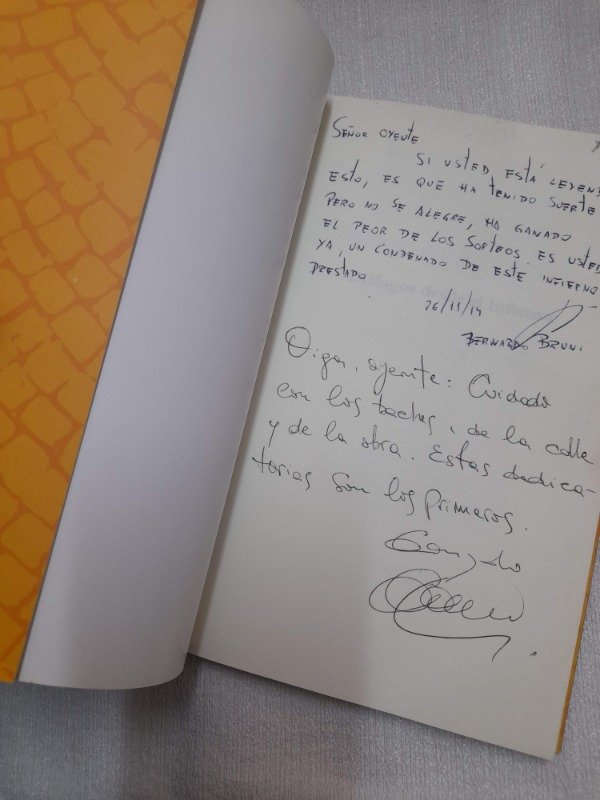 SEÑOR OYENTE
SI USTED ESTÁ LEYEND
ESTO, ES QUE HA TENIDO SUERTE
PERO NO SE ALEGRE, HA GANADO
EL PEOR DE LOS SORTEOS. ES USTED
YA, UN CONDENADO DE ESTE INFIERNO
PRESTADO.
26/11/19
BERNARDO BRUNI
Oiga, oyente: Cuidado
con los baches, de la calle
y de la obra. Estas dedica-
torias son los primeros.
Gonzalo